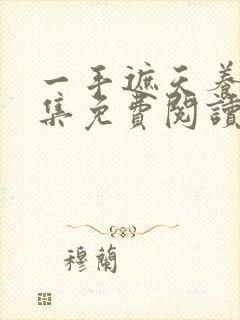 一手遮天養
集免費閱讀
穆蘭